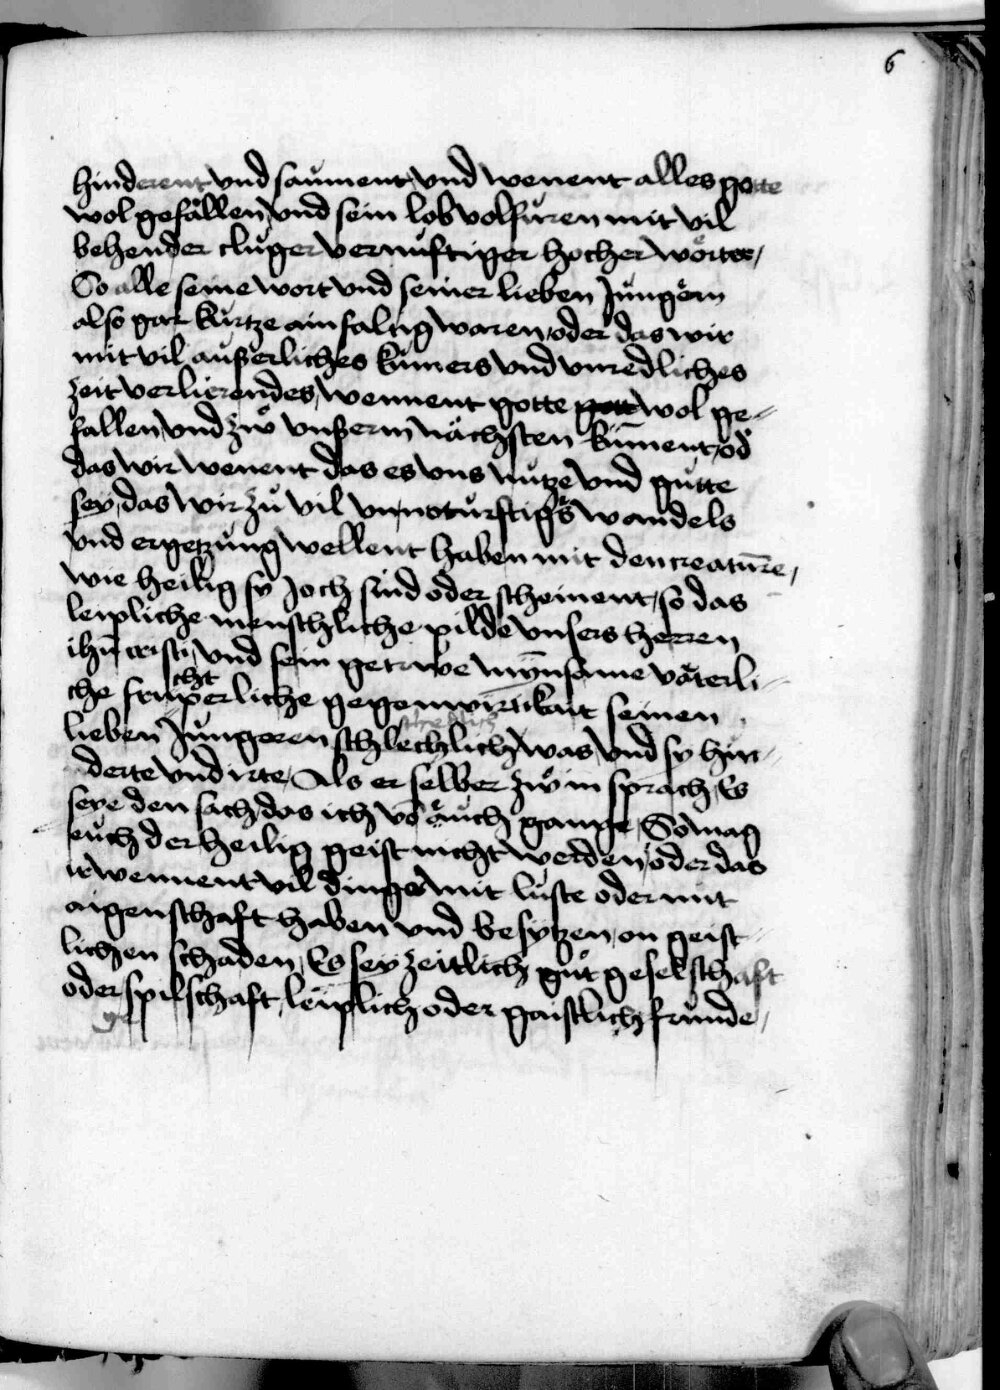 6
hinderent vnd saument vnd wenent alles gotte
wol gefallen vnd sein lob volfüren mit vil
behender cluger vernuftiger hocher wörter /
So alle seine wort vnd seiner lieben Jungern
also gar kurtze ainfaltig waren / oder das wir
mit vil aŭßerliches kumers vnd vnredliches
zeit verlierendes / wennent gotte gott wol ge-
fallen / vnd zuͦ vnßerm nächsten kūment / od
das wir wenent das es vns nutze vnd gutte
sey / das wir zu vil vnnoturftigs wandels
vnd ergetzung wellent haben mit den creatūre /
wie heilig sy Joch sind oder scheinent / so das
leipliche menschliche pilde vnsers herren
ihū cristi / vnd sein getrwe mynsame väterli-
cht
che liche gegenwirtikait seinen
lieben Jungeren schlechlich was / vnd sy hin-
derte vnd irte / Als er selber zuͦ in sprach / Es
seye den sach das ich vō äuch gange / So mag
euch der heilig geist nicht werden / oder das
ir wennent vil dinge mit luste oder mit
aigenschaft haben vnd besytzen / on geist-
lichen schaden / Es sey zeitlich gut geselschaft
oder spilschaft / leiplich oder gaistlich frunde /
ge